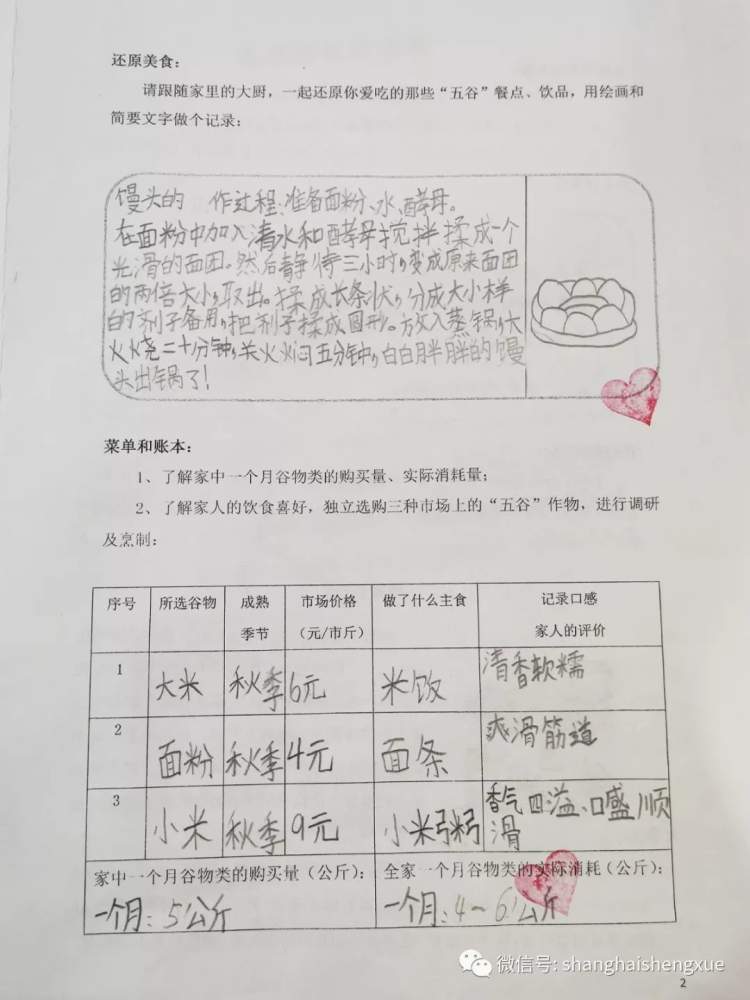 还原美食：
请跟随家里的大厨，一起还原你爱吃的那些“五谷”餐点、饮品，用绘画和
简要文字做个记录：
馒头的 作过程：准备面粉、水、酵母。
在面粉中加入清水和酵母搅拌揉成一个
光滑的面团。然后静待三小时，变成原来面团
的两倍大小，取出。揉成长条状，分成大小样
的剂子备用，把剂子揉成圆形。放入蒸锅，大
火烧二十分钟，关火焖五分钟，白白胖胖的馒
头出锅了！
菜单和账本：
1、了解家中一个月谷物类的购买量、实际消耗量；
2、了解家人的饮食喜好，独立选购三种市场上的“五谷”作物，进行调研
及烹制：
序号 所选谷物 成熟季节 市场价格（元/市斤） 做了什么主食 记录口感家人的评价
1 大米 秋季 6元 米饭 清香软糯
2 面粉 秋季 4元 面条 爽滑筋道
3 小米 秋季 9元 小米粥 香气四溢、口感顺滑
家中一个月谷物类的购买量（公斤）： 全家一个月谷物类的实际消耗（公斤）：
一个月：5公斤 一个月：4～6公斤
微信号: shanghaishengxue
2